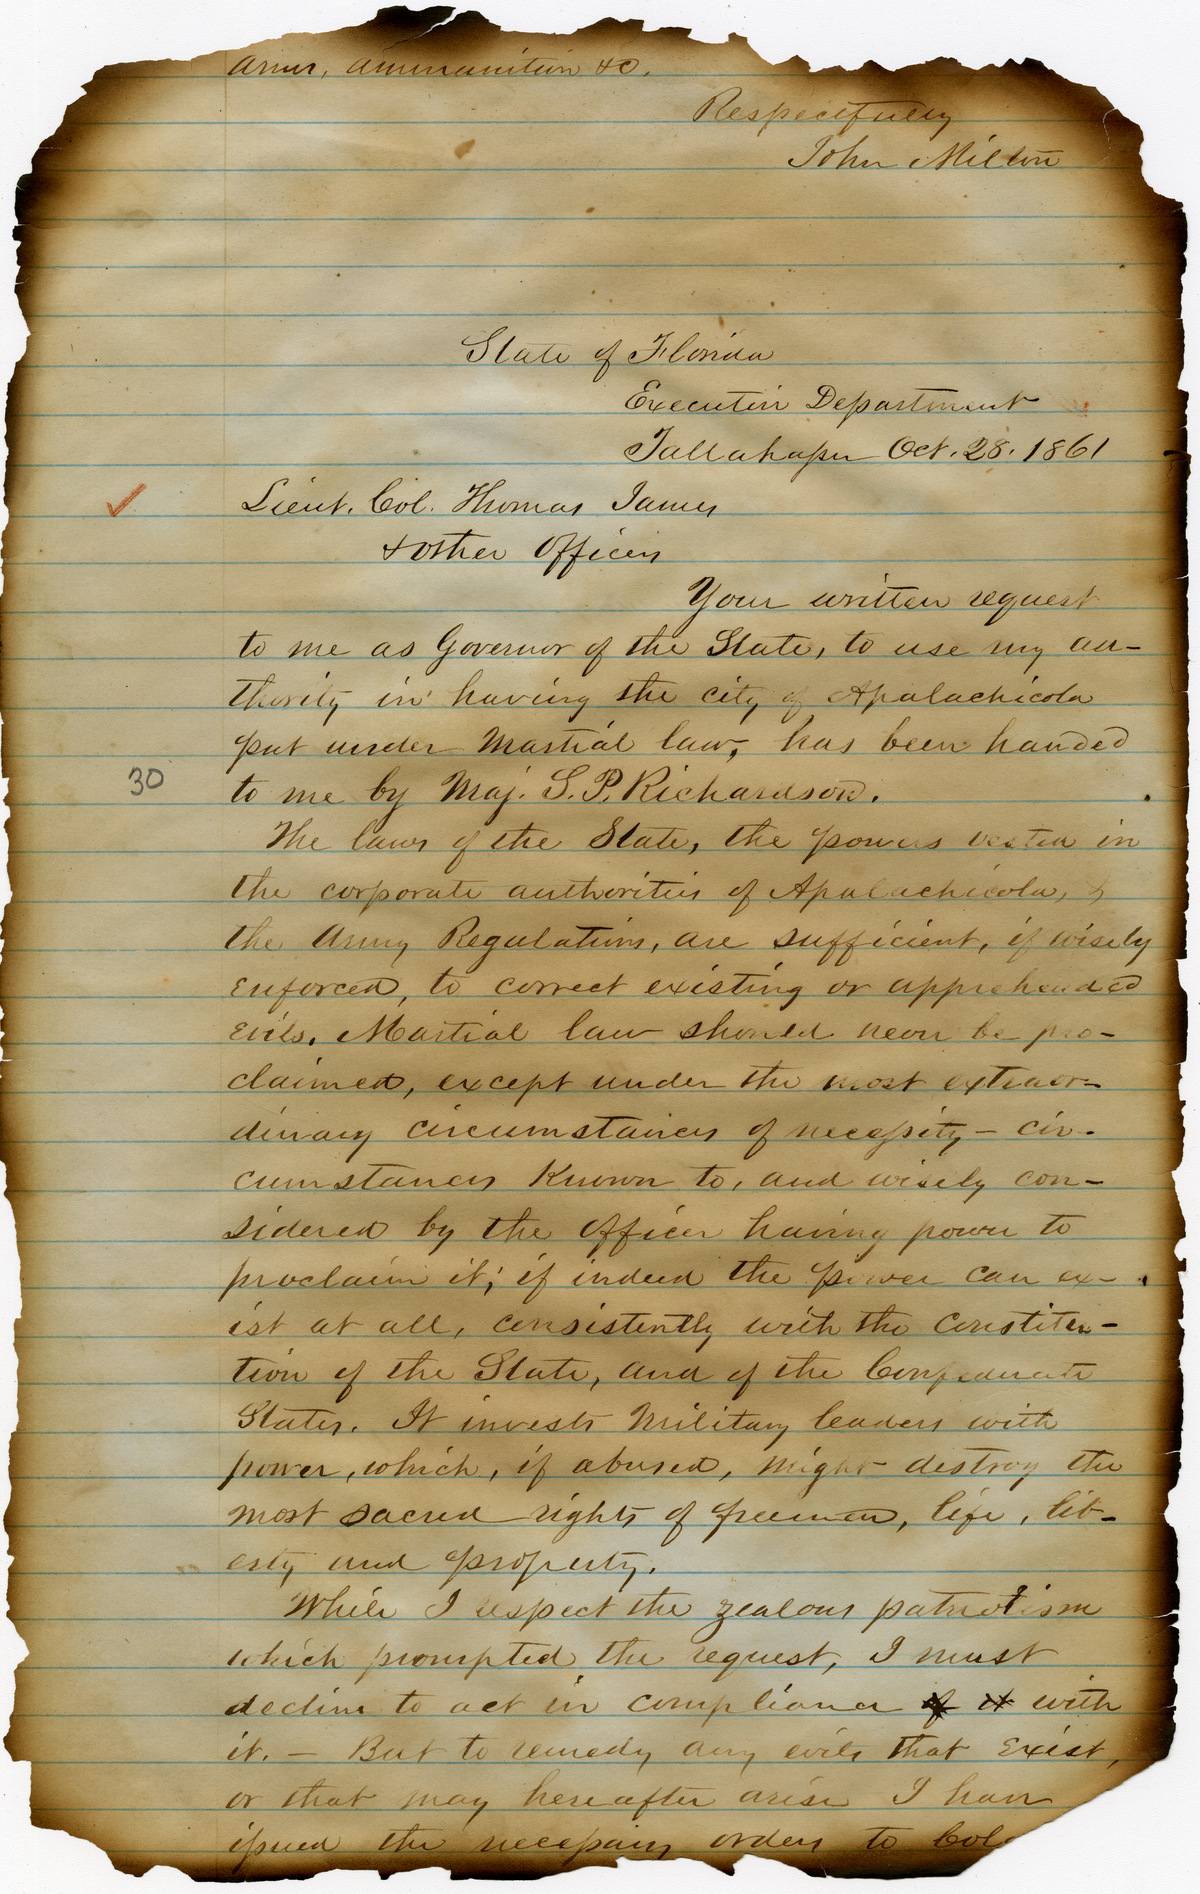 Arms, ammunition &c.
Respectfully
John Milton
State of Florida
Executive Department
Tallahassee Oct. 28. 1861
Lieut. Col. Thomas James
& other Officers
Your written request
to me as Governor of the State, to use my au-
thority in having the city of Apalachicola
put under Martial law, has been handed
30
to me by Maj. S. P. Richardson.
The laws of the State, the powers vested in
the corporate authorities of Apalachicola, &
the Army Regulations, are sufficient, if wisely
enforced, to correct existing or apprehended
evils. Martial law should never be pro-
claimed, except under the most extraor-
dinary circumstances of necessity - cir-
cumstances known to, and wisely con-
sidered by the officer having power to
proclaim it; if indeed the power can ex-
ist at all, consistently with the Constitu-
tion of the State, and of the Confederate
States. It invests Military leaders with
power, which, if abused, might destroy the
most sacred rights of freemen, life, lib-
erty and property.
While I respect the zealous patriotism
which prompted the request, I must
decline to act in compliance of it with
it. - But to remedy any evils that exist,
or that may hereafter arise I have
issued the necessary orders to Col.